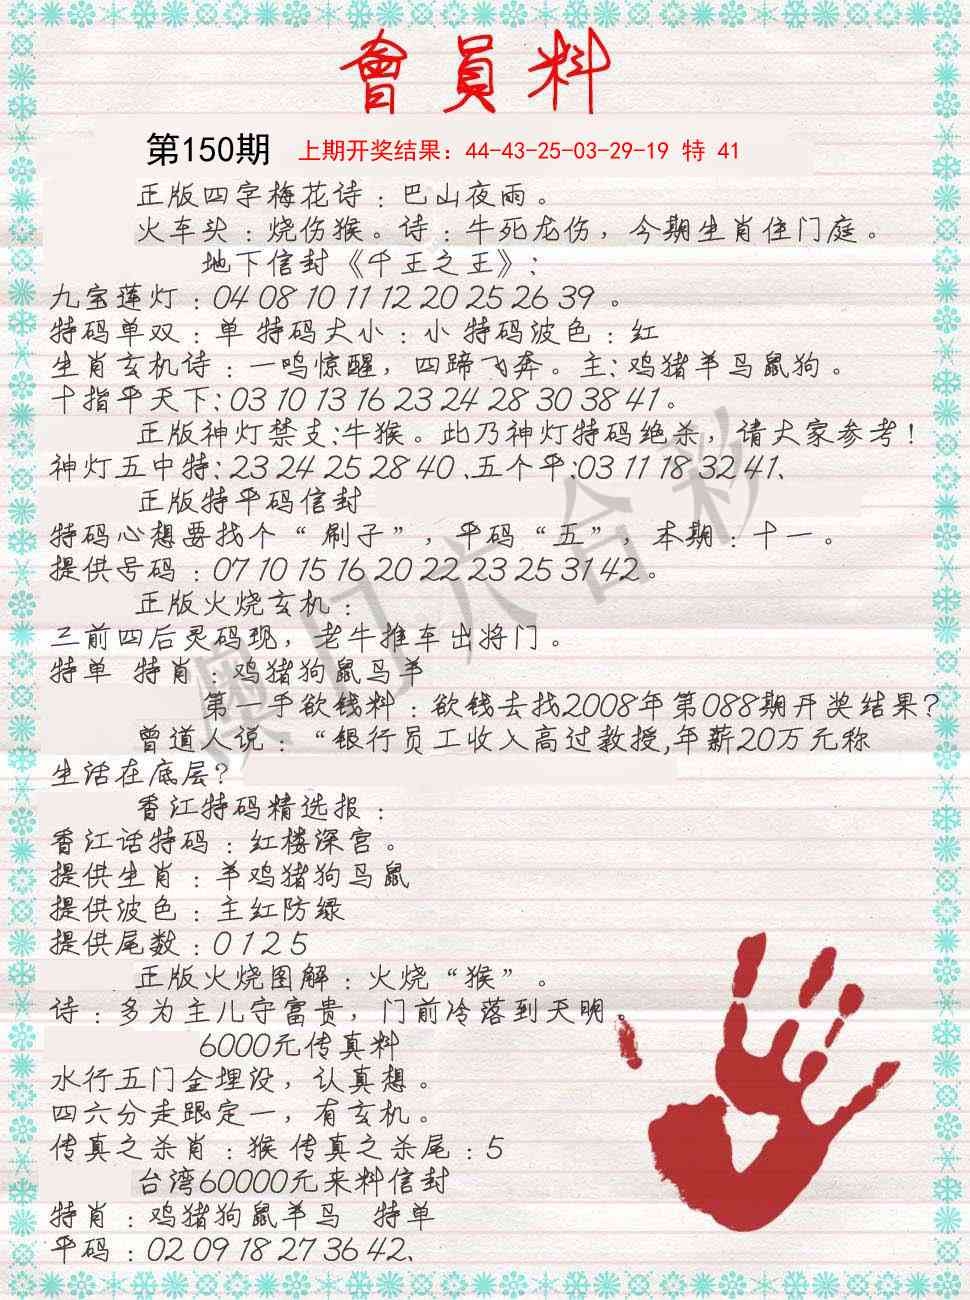 會員料
第150期 上期开奖结果：44-43-25-03-29-19 特 41
正版四字梅花诗：巴山夜雨。
火车头：烧伤猴。诗：牛死龙伤，今期生肖住门庭。
地下信封《千王之王》：
九宝莲灯：04 08 10 11 12 20 25 26 39 。
特码单双：单 特码大小：小 特码波色：红
生肖玄机诗：一鸣惊醒，四蹄飞奔。主：鸡猪羊马鼠狗。
十指平天下：03 10 13 16 23 24 28 30 38 41。
正版神灯禁支：牛猴。此乃神灯特码绝杀，请大家参考！
神灯五中特：23 24 25 28 40、五个平：03 11 18 32 41、
正版特平码信封
特码心想要找个“刷子”，平码“五”，本期：十一。
提供号码：07 10 15 16 20 22 23 25 31 42。
正版火烧玄机：
三前四后灵码现，老牛推车出将门。
特单 特肖：鸡猪狗鼠马羊
第一手欲钱料：欲钱去找2008年第088期开奖结果？
曾道人说：“银行员工收入高过教授，年薪20万元称
生活在底层？
香江特码精选报：
香江话特码：红楼深宫。
提供生肖：羊鸡猪狗马鼠
提供波色：主红防绿
提供尾数：0 1 2 5
正版火烧图解：火烧“猴”。
诗：多为主儿守富贵，门前冷落到天明。
6000元传真料
水行五门金埋设，认真想。
四六分走跟定一，有玄机。
传真之杀肖：猴 传真之杀尾：5
台湾60000元来料信封
特肖：鸡猪狗鼠羊马 特单
平码：02 09 18 27 36 42、
澳门六合彩